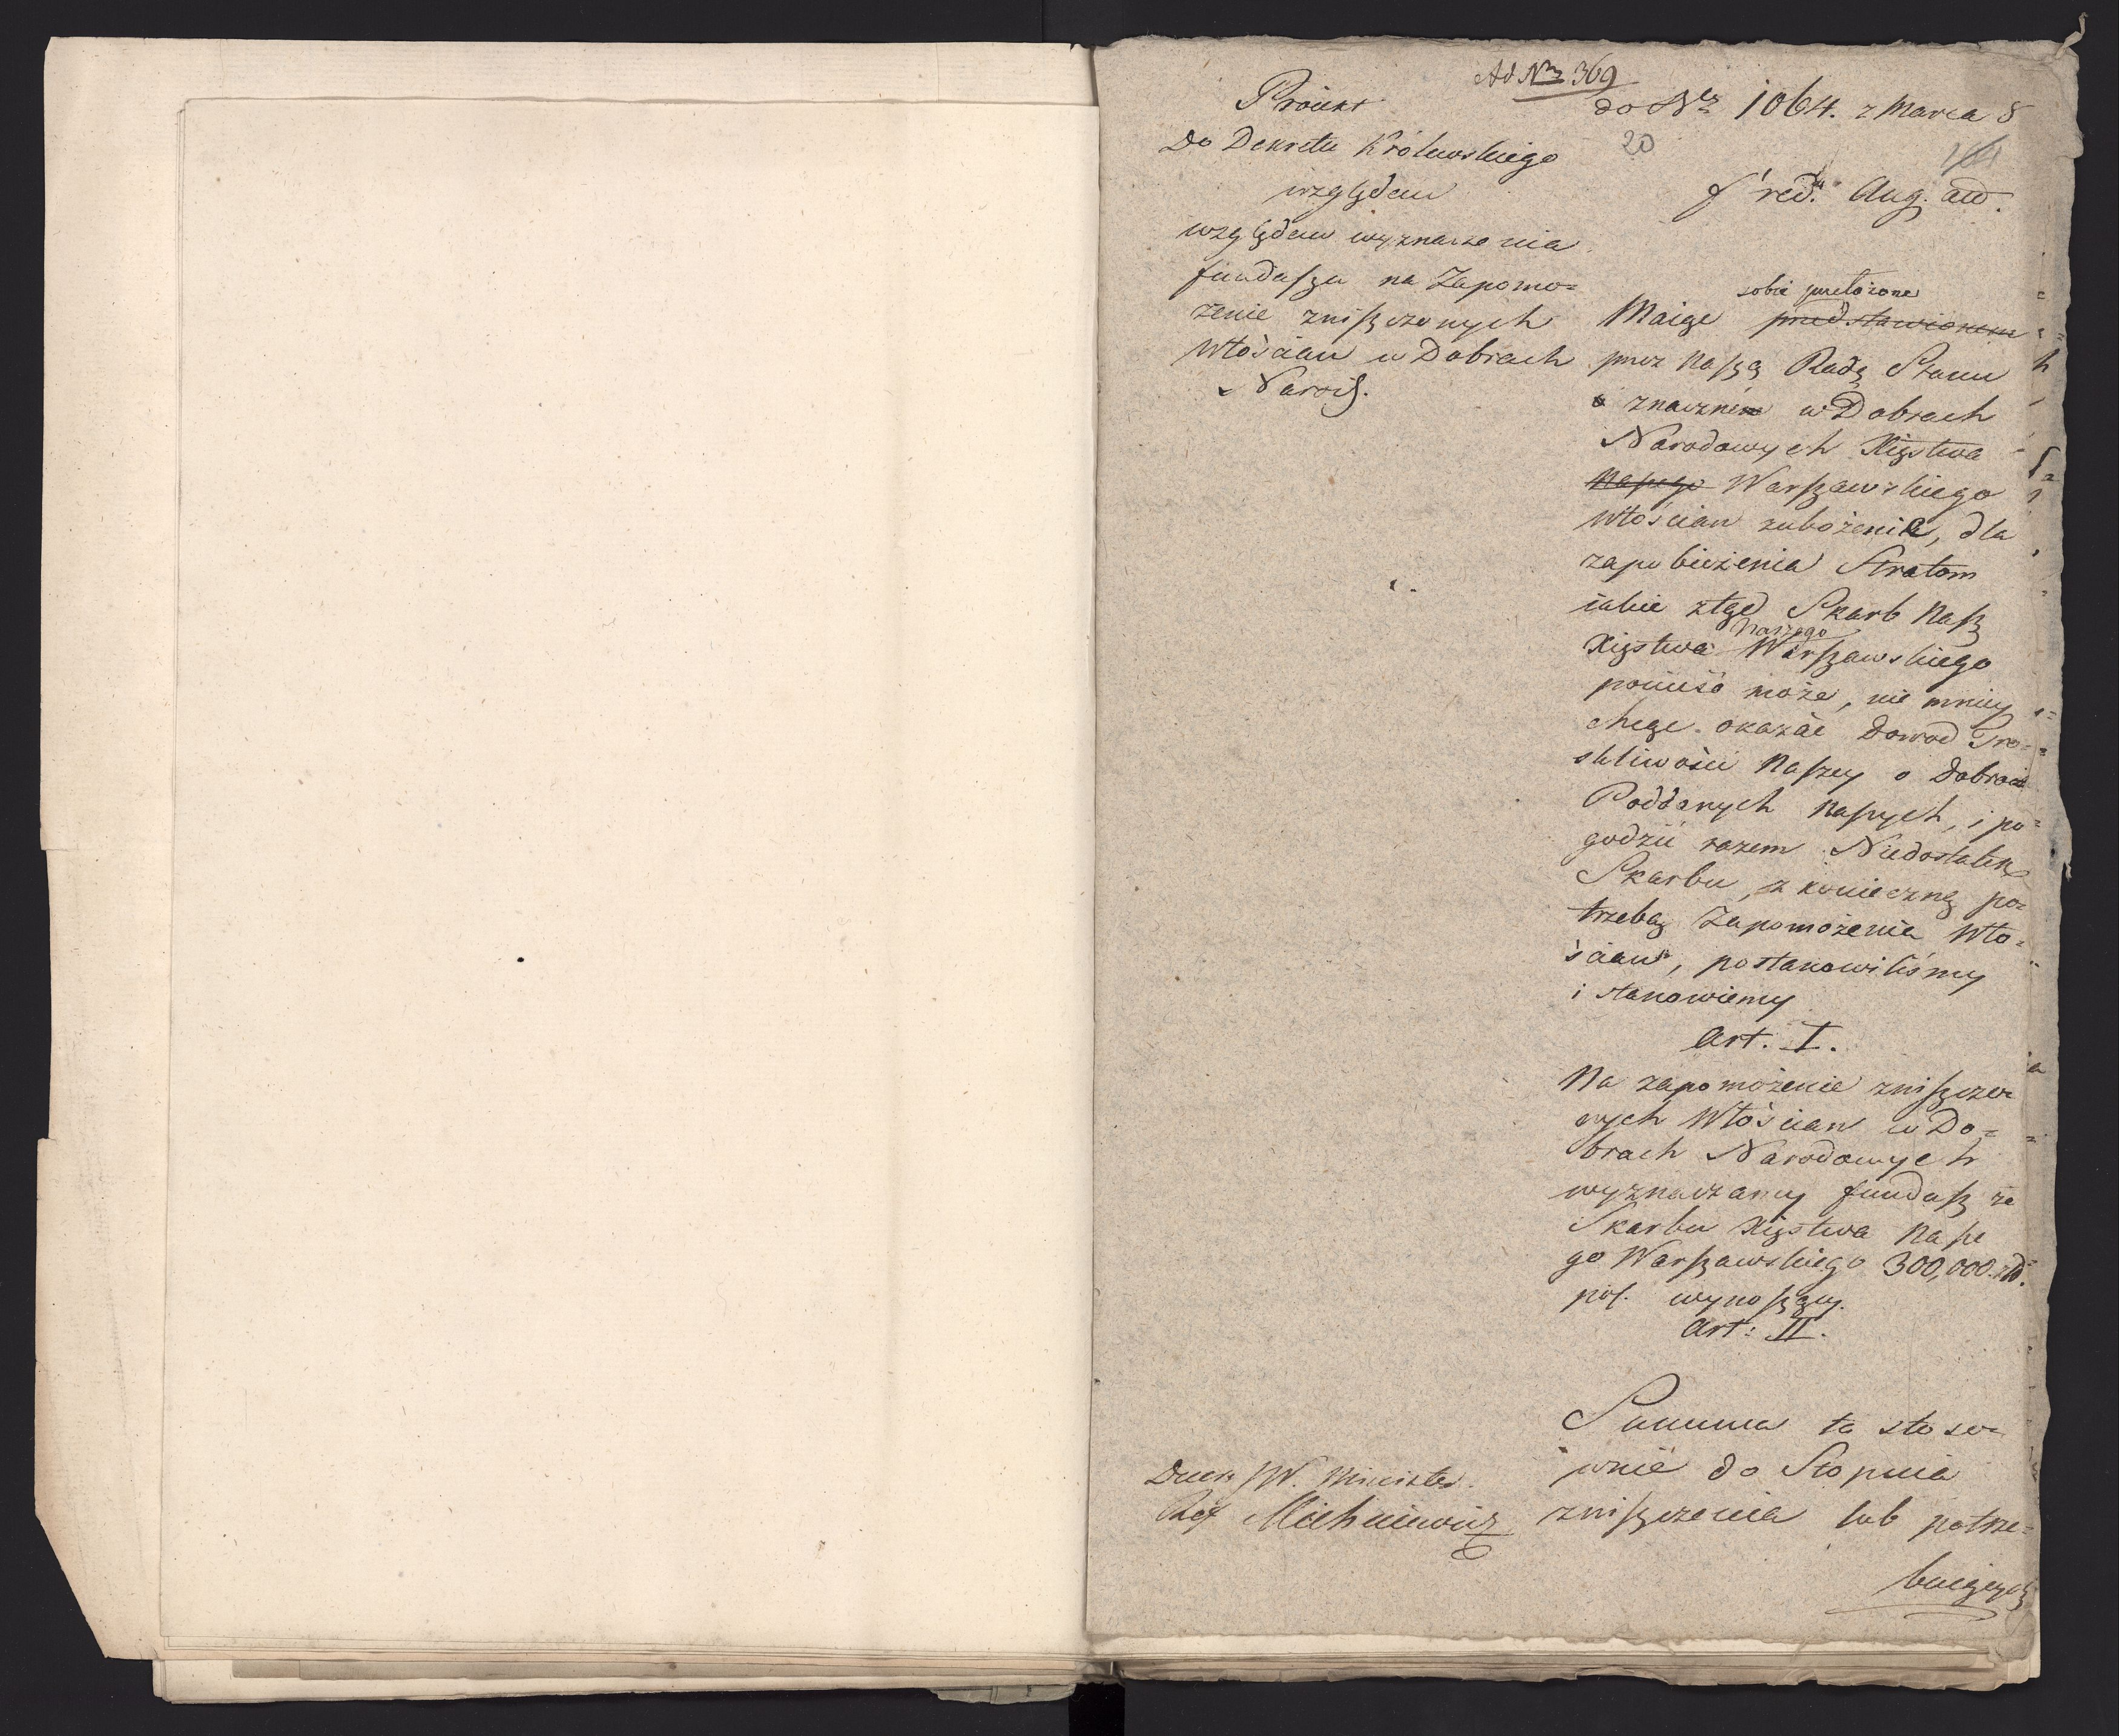 Ad Nrz 369
do Nrz 1064. z Marca 8
20
Proiekt
Do Dekretu Królewskiego
względem
względem wyznaczenia
funduszu na Zapomo=
żenie zniszczonych
Włościan w Dobrach
Narod.
Fred. Aug. etc.
sobie przełożone
Maiąc przedstawionem
przez Naszą Radę Stanu
o znaczne w Dobrach
Narodowych Xięstwa
Naszego Warszawskiego
włościan zubożenie, dla
zapobieżenia Stratom
iakie ztąd Skarb Nasz
Naszego
Xięstwa Warszawskiego
ponieść może, nie mniey
chcąc okazać Dowod Tro=
skliwości Naszey o Dobro
Poddanych Naszych, i po=
godzić razem Niedostatek
Skarbu, z konieczną po=
trzebą Zapomożenia Wło=
ścian, postanowiliśmy
i stanowiemy
Art. I.
Na zapomożenie zniszczo
nych Włościan w Do=
brach Narodowych
wyznaczamy fundusz ze
Skarbu Xięstwa Nasze
go Warszawskiego 300,000 zł.
pol. wynoszący.
Art: II.
Summa ta stoso=
wnie do Stopnia
zniszczenia lub potrze=
buiących
JW. Minister
Michniewicz